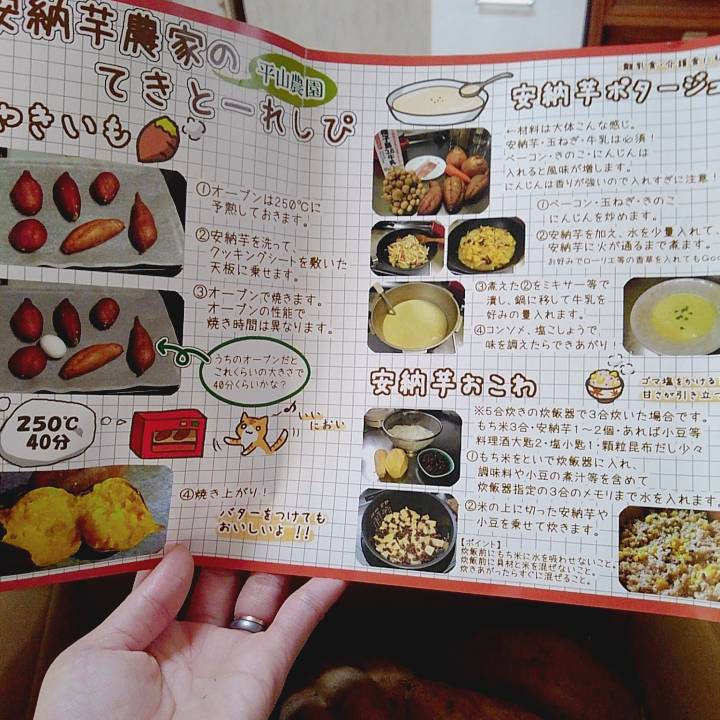 安納芋農家の
てきとーれしぴ
平山農園
やきいも
①オーブンは250℃に
予熱しておきます。
②安納芋を洗って、
クッキングシートを敷いた
天板に乗せます。
③オーブンで焼きます。
オーブンの性能で
焼き時間は異なります。
うちのオーブンだと
これくらいの大きさで
40分くらいかな?
250℃
40分
いい
におい
④焼き上がり!
バターをつけても
おいしいよ!!
離乳食・介護食に
安納芋ポタージュ
←材料は大体こんな感じ。
安納芋・玉ねぎ・牛乳は必須!
ベーコン・きのこ・にんじんは
入れると風味が増します。
にんじんは香りが強いので入れすぎに注意!
①ベーコン・玉ねぎ・きのこ
にんじんを炒めます。
②安納芋を加え、水を少量入れて、
安納芋に火が通るまで煮ます。
お好みでローリエ等の香草を入れてもGoo
③煮えた②をミキサー等で
潰し、鍋に移して牛乳を
好みの量入れます。
④コンソメ、塩こしょうで、
味を調えたらできあがり!
安納芋おこわ
ゴマ塩をかける
甘さが引き立つ
※5合炊きの炊飯器で3合炊いた場合です。
もち米3合・安納芋1〜2個・あれば小豆等
料理酒大匙2・塩小匙1・顆粒昆布だし少々
①もち米をといで炊飯器に入れ、
調味料や小豆の煮汁等を含めて
炊飯器指定の3合のメモリまで水を入れます
②米の上に切った安納芋や
小豆を乗せて炊きます。
【ポイント】
炊飯前にもち米に水を吸わせないこと。
炊飯前に具材と米を混ぜないこと。
炊きあがったらすぐに混ぜること。